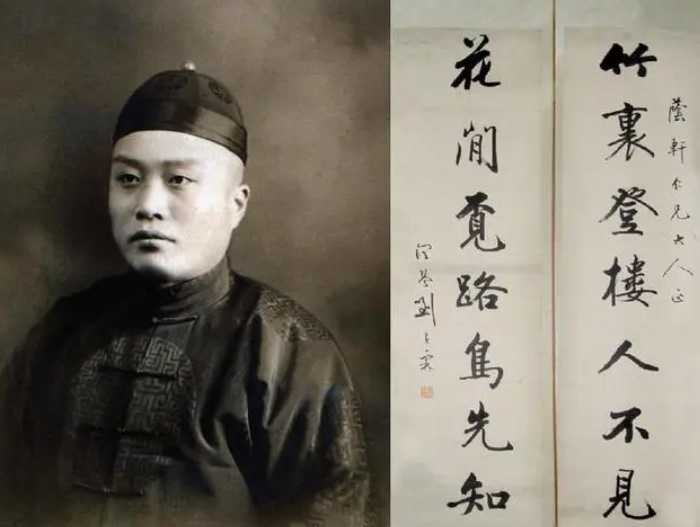 蔭軒仁兄大人正
竹裏登樓人不見
花間覓路鳥先知
劉